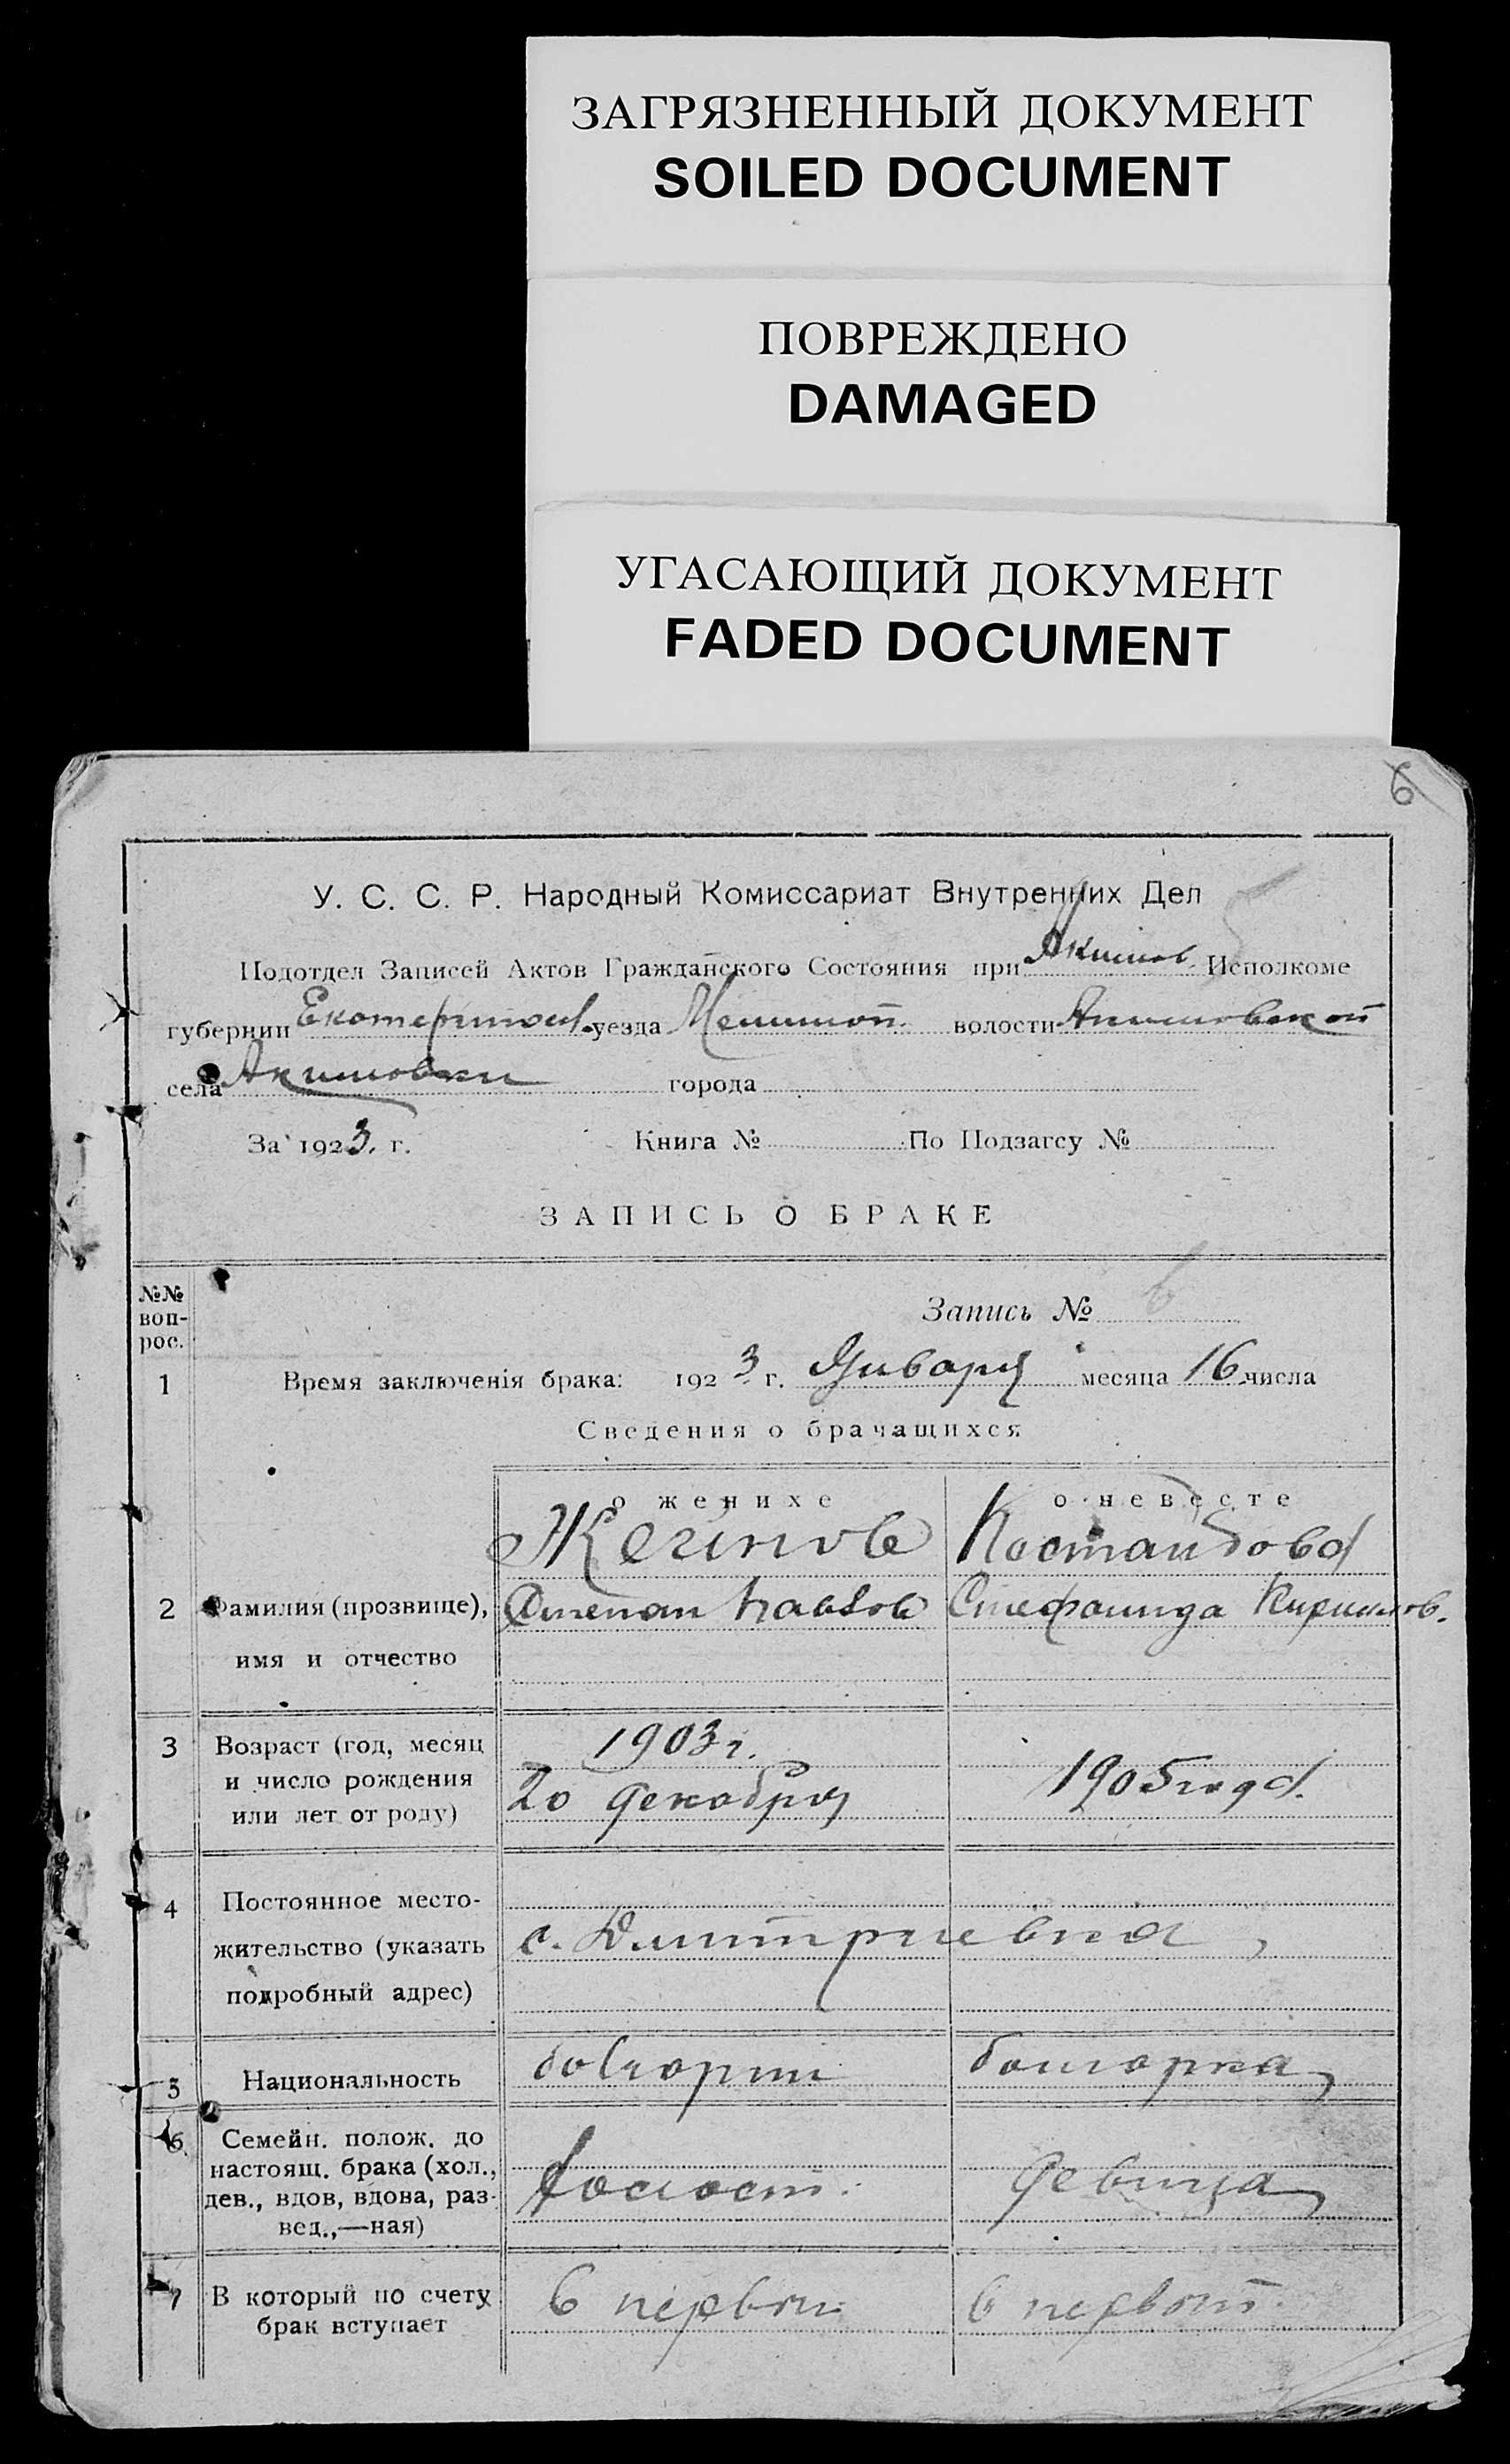 ЗАГРЯЗНЕННЫЙ ДОКУМЕНТ
SOILED DOCUMENT
ПОВРЕЖДЕНО
DAMAGED
УГАСАЮЩИЙ ДОКУМЕНТ
FADED DOCUMENT
6
У. С. С. Р. Народный Комиссариат Внутренних Дел
Подотдел Записей Актов Гражданского Состояния при Акимов Исполкоме
губернии Екатеринос. уезда Мелитоп. волости Акимовской
села Акимовки города
За 1923. г. Книга № По Подзагсу №
ЗАПИСЬ О БРАКЕ
№№ воп-рос.
Запись № 6
1 Время заключенія брака: 1923 г. Января месяца 16 числа
Сведения о брачащихся
о женихе о невесте
Костандова
2 Фамилия (прозвище), Степан Павлов Стефанида Кирилов.
имя и отчество
3 Возраст (год, месяц 1903 г.
и число рождения 20 декабря 1905 года.
или лет от роду)
4 Постоянное место-
жительство (указать с. Дмитриевка
подробный адрес)
5 Национальность болгарин болгарка
6 Семейн. полож. до
настоящ. брака (хол., Холост. девица
дев., вдов, вдова, раз-
вед.,—ная)
7 В который по счету в первый в первый
брак вступает